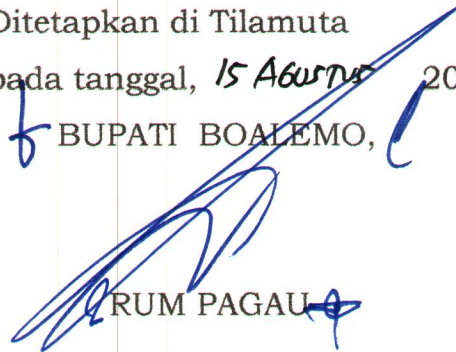 Ditetapkan di Tilamuta
pada tanggal, 15 AGUSTUS 20
BUPATI BOALEMO,
RUM PAGAU